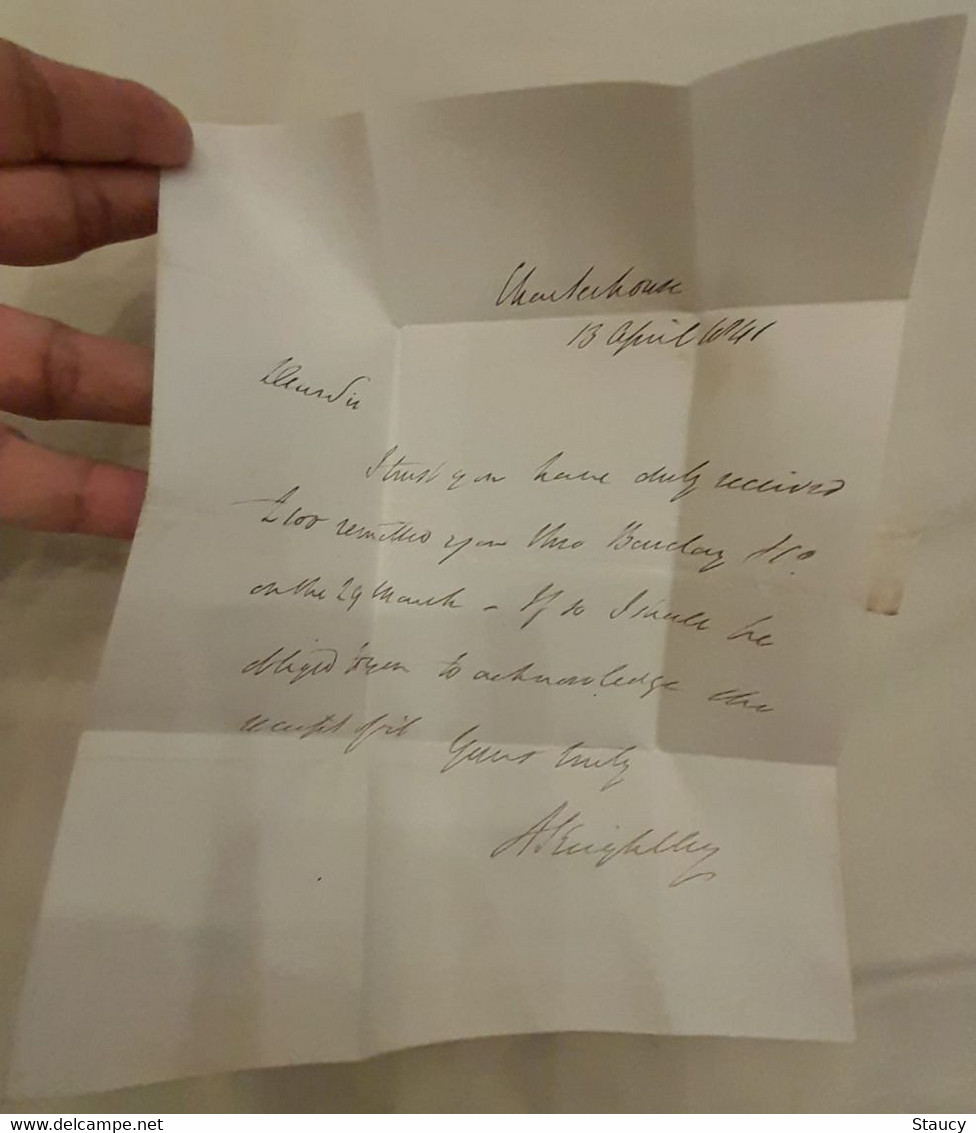 Charterhouse
13 April 1841
Dear Sir
I trust you have duly received
£100 remitted you thro Barclay & Co
on the 29 March - If so I shall be
obliged to you to acknowledge the
receipt of it
Yours truly
A Knightley
www.delcampe.net
Staucy